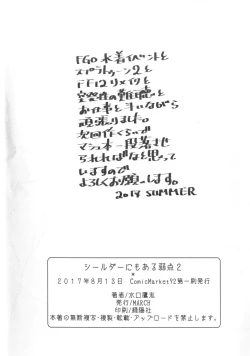 FGO水着イベントと
スプラトゥーン2と
FF12リメイクと
突発性の難聴と
お仕事と手いながら
頑張りました。
次回作くらいで
マシュ本一段落させ
られればなと思って
いますので
よろしくお願いします。
2017 SUMMER
シールダーにもある弱点2
*
2017年8月13日 ComicMarket92第一刷発行
著者/水口鷹志
発行/MARCH
印刷/緑陽社
本書の無断複写・複製・転載・アップロードを禁止します。